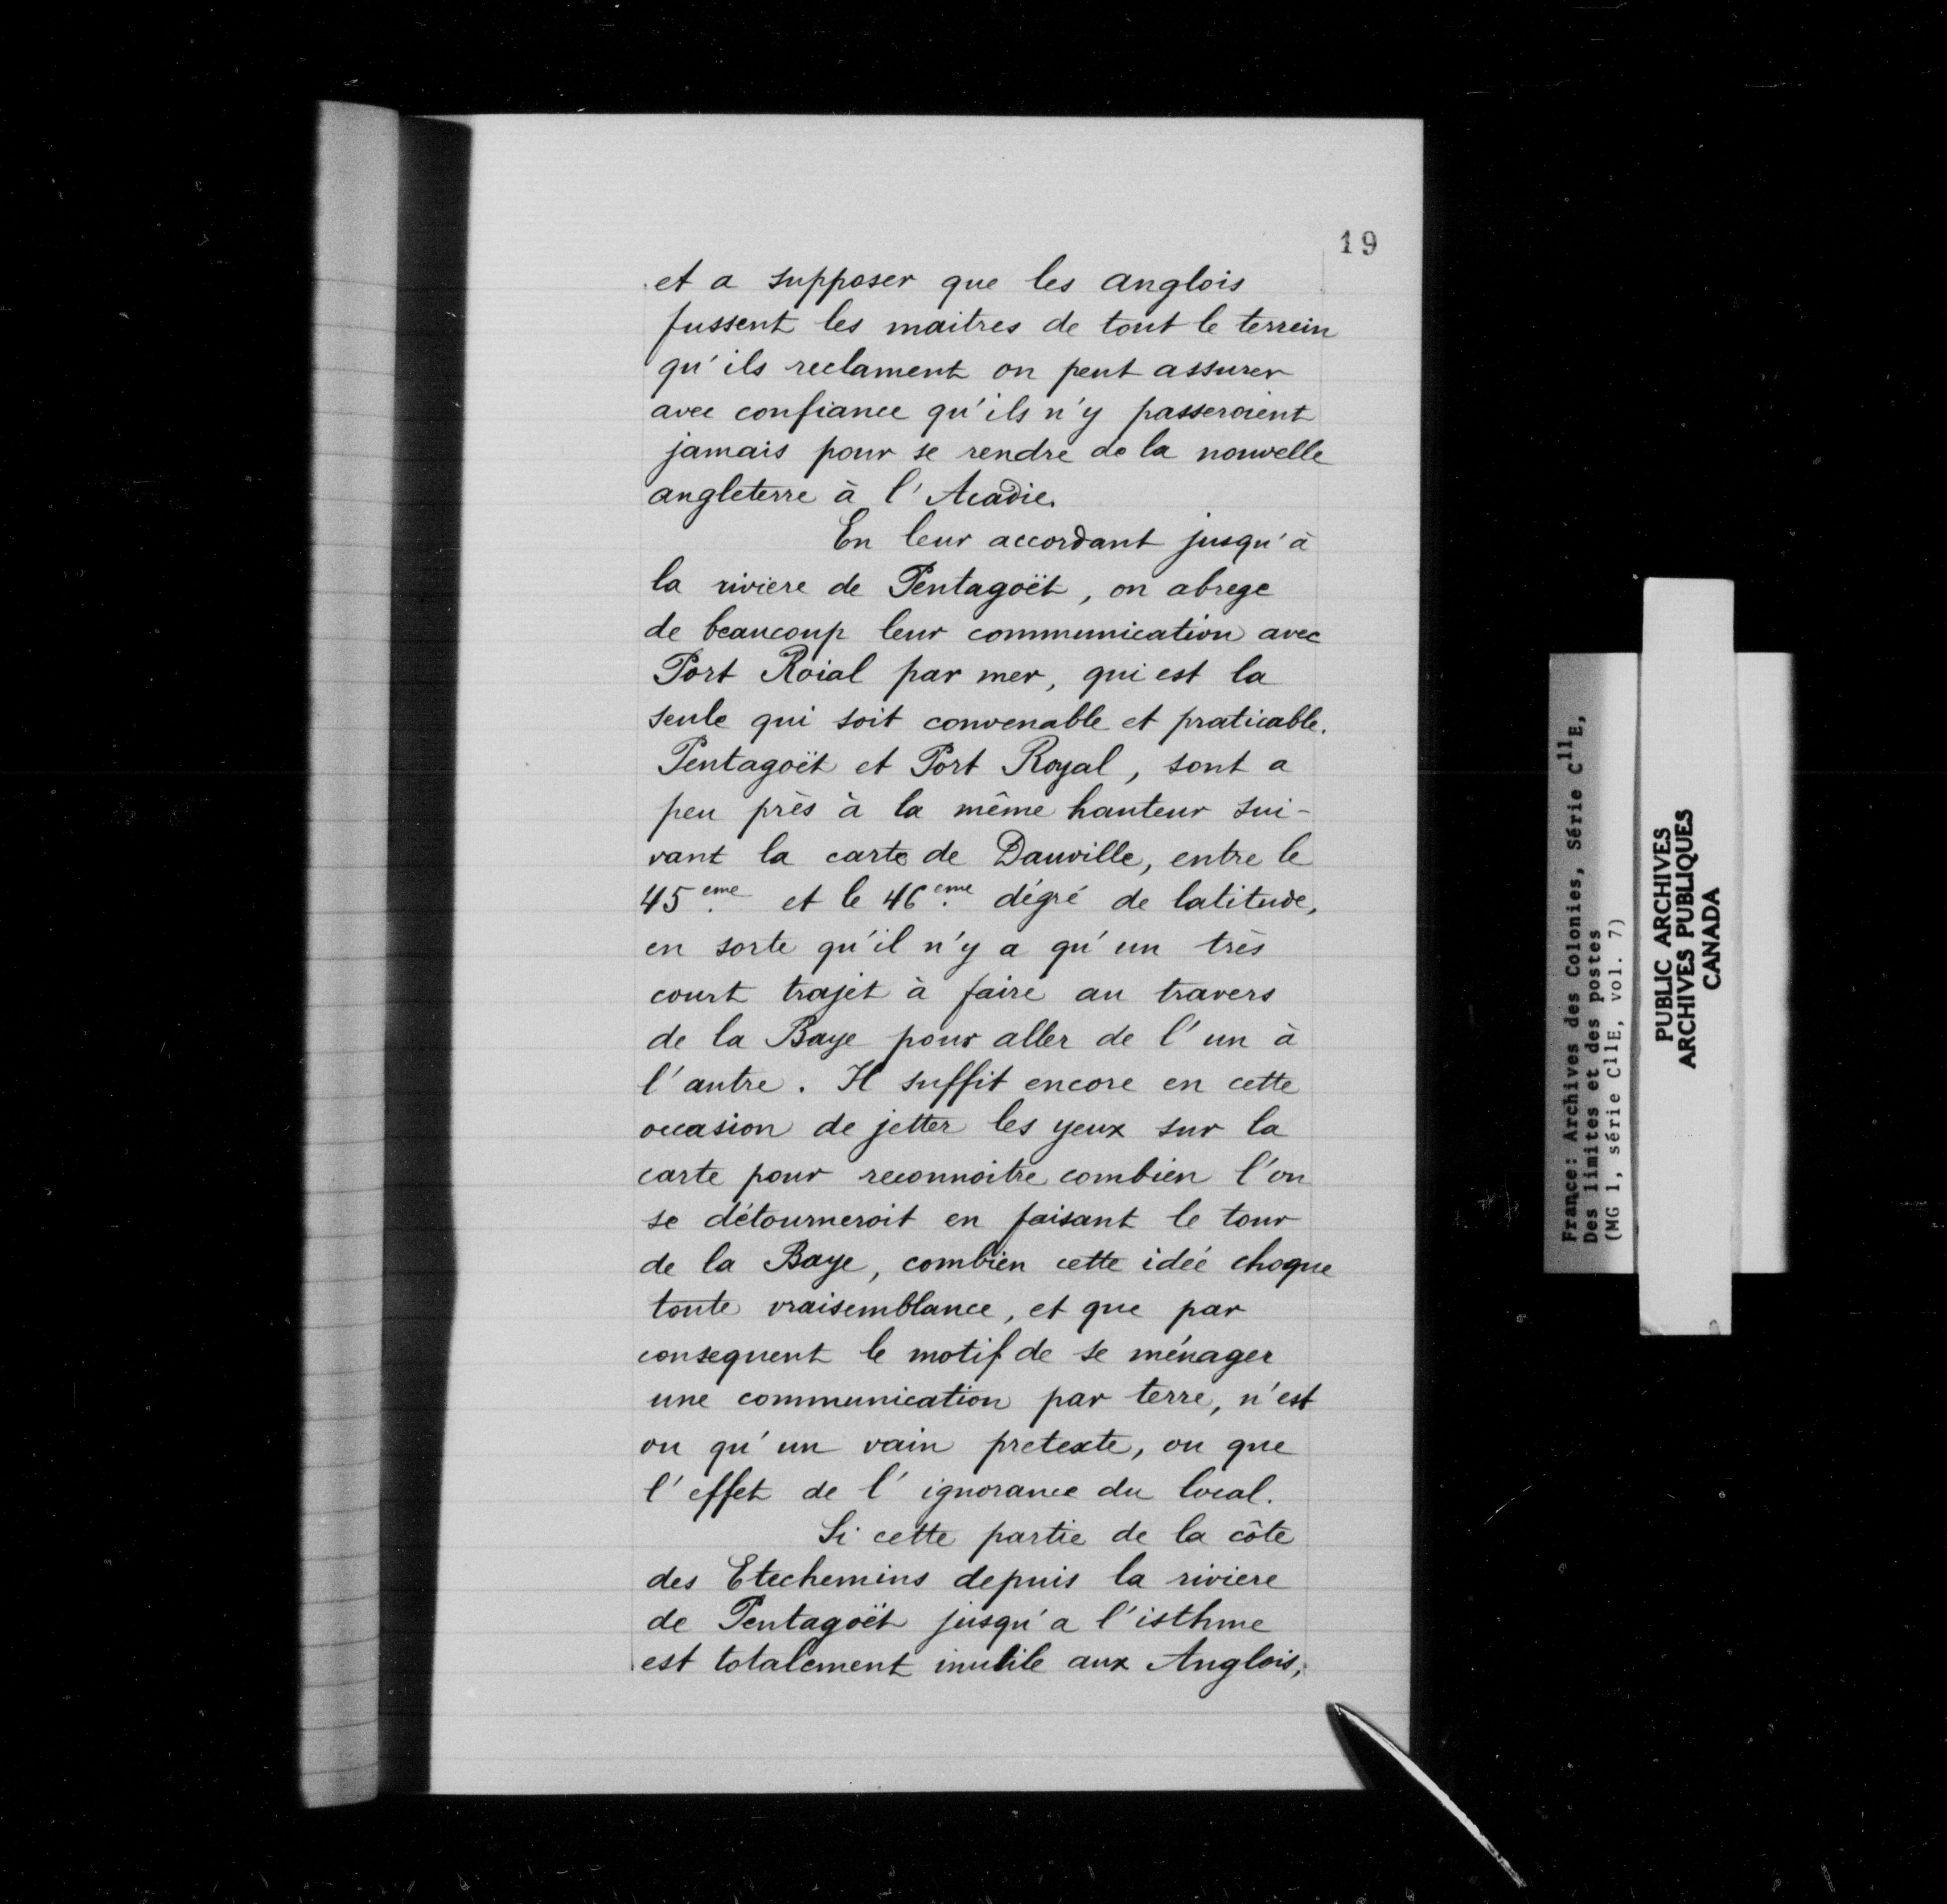 19
et a supposer que les anglois
fussent les maitres de tout le terrein
qu'ils reclament on peut assurer
avec confiance qu'ils n'y passeroient
jamais pour se rendre de la nouvelle
angleterre à l'Acadie.
En leur accordant jusqu'à
la riviere de Pentagoët, on abrege
de beaucoup leur communication avec
Port Roial par mer, qui est la
seule qui soit convenable et praticable.
Pentagoët et Port Royal, sont a
peu près à la même hauteur sui-
vant la carte de Dauville, entre le
45.eme et le 46.eme dégré de latitude,
en sorte qu'il n'y a qu'un très
court trajet à faire au travers
de la Baye pour aller de l'un à
l'autre. Il suffit encore en cette
occasion de jetter les yeux sur la
carte pour reconnoitre combien l'on
se détourneroit en faisant le tour
de la Baye, combien cette idée choque
toute vraisemblance, et que par
consequent le motif de se ménager
une communication par terre, n'est
ou qu'un vain pretexte, ou que
l'effet de l'ignorance du local.
Si cette partie de la côte
des Etechemins depuis la riviere
de Pentagoët jusqu'a l'isthme
est totalement inutile aux Anglois,
France: Archives des Colonies, Série C11E,
Des limites et des postes
(MG 1, série C11E, vol. 7)
PUBLIC ARCHIVES
ARCHIVES PUBLIQUES
CANADA